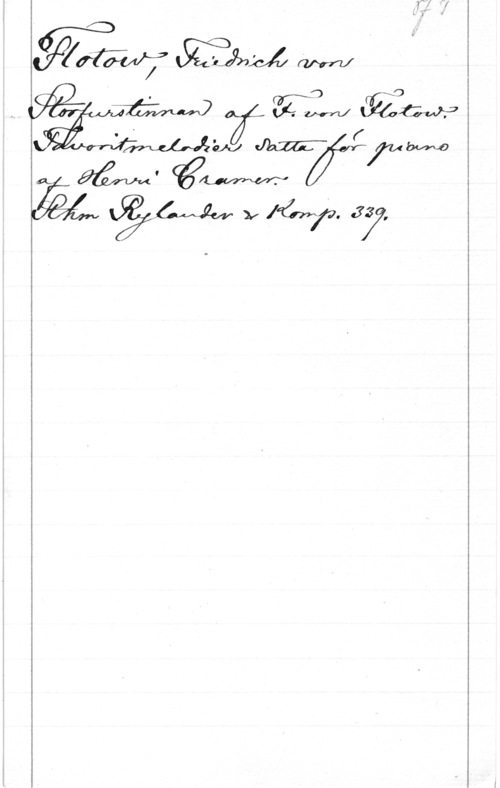 Flotow, Friedrich von
Storfurstinnan af F. von Flotow.
Favoritmelodier satta för piano
af Henri Cramer.
Sthm Rylander & Komp. 339.